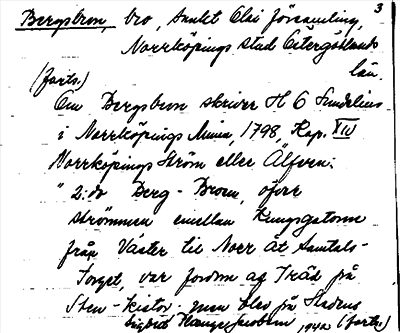 3
Bergsbron, bro, Sankt Olai församling,
Norrköpings stad Östergötlands
län.
(forts.)
Om Bergsbron skriver H O Sundelius
i Norrköpings Minne, 1798, Kap. XIV
Norrköpings Ström eller Älfven:
" 2:do Berg-Bron, öfver
strömmen emellan Kungsgatorne
från Väster til Norr åt Samtals-
Torget, var fordom af Träd på
Sten-kistor, men blef på Stadens
(forts.)